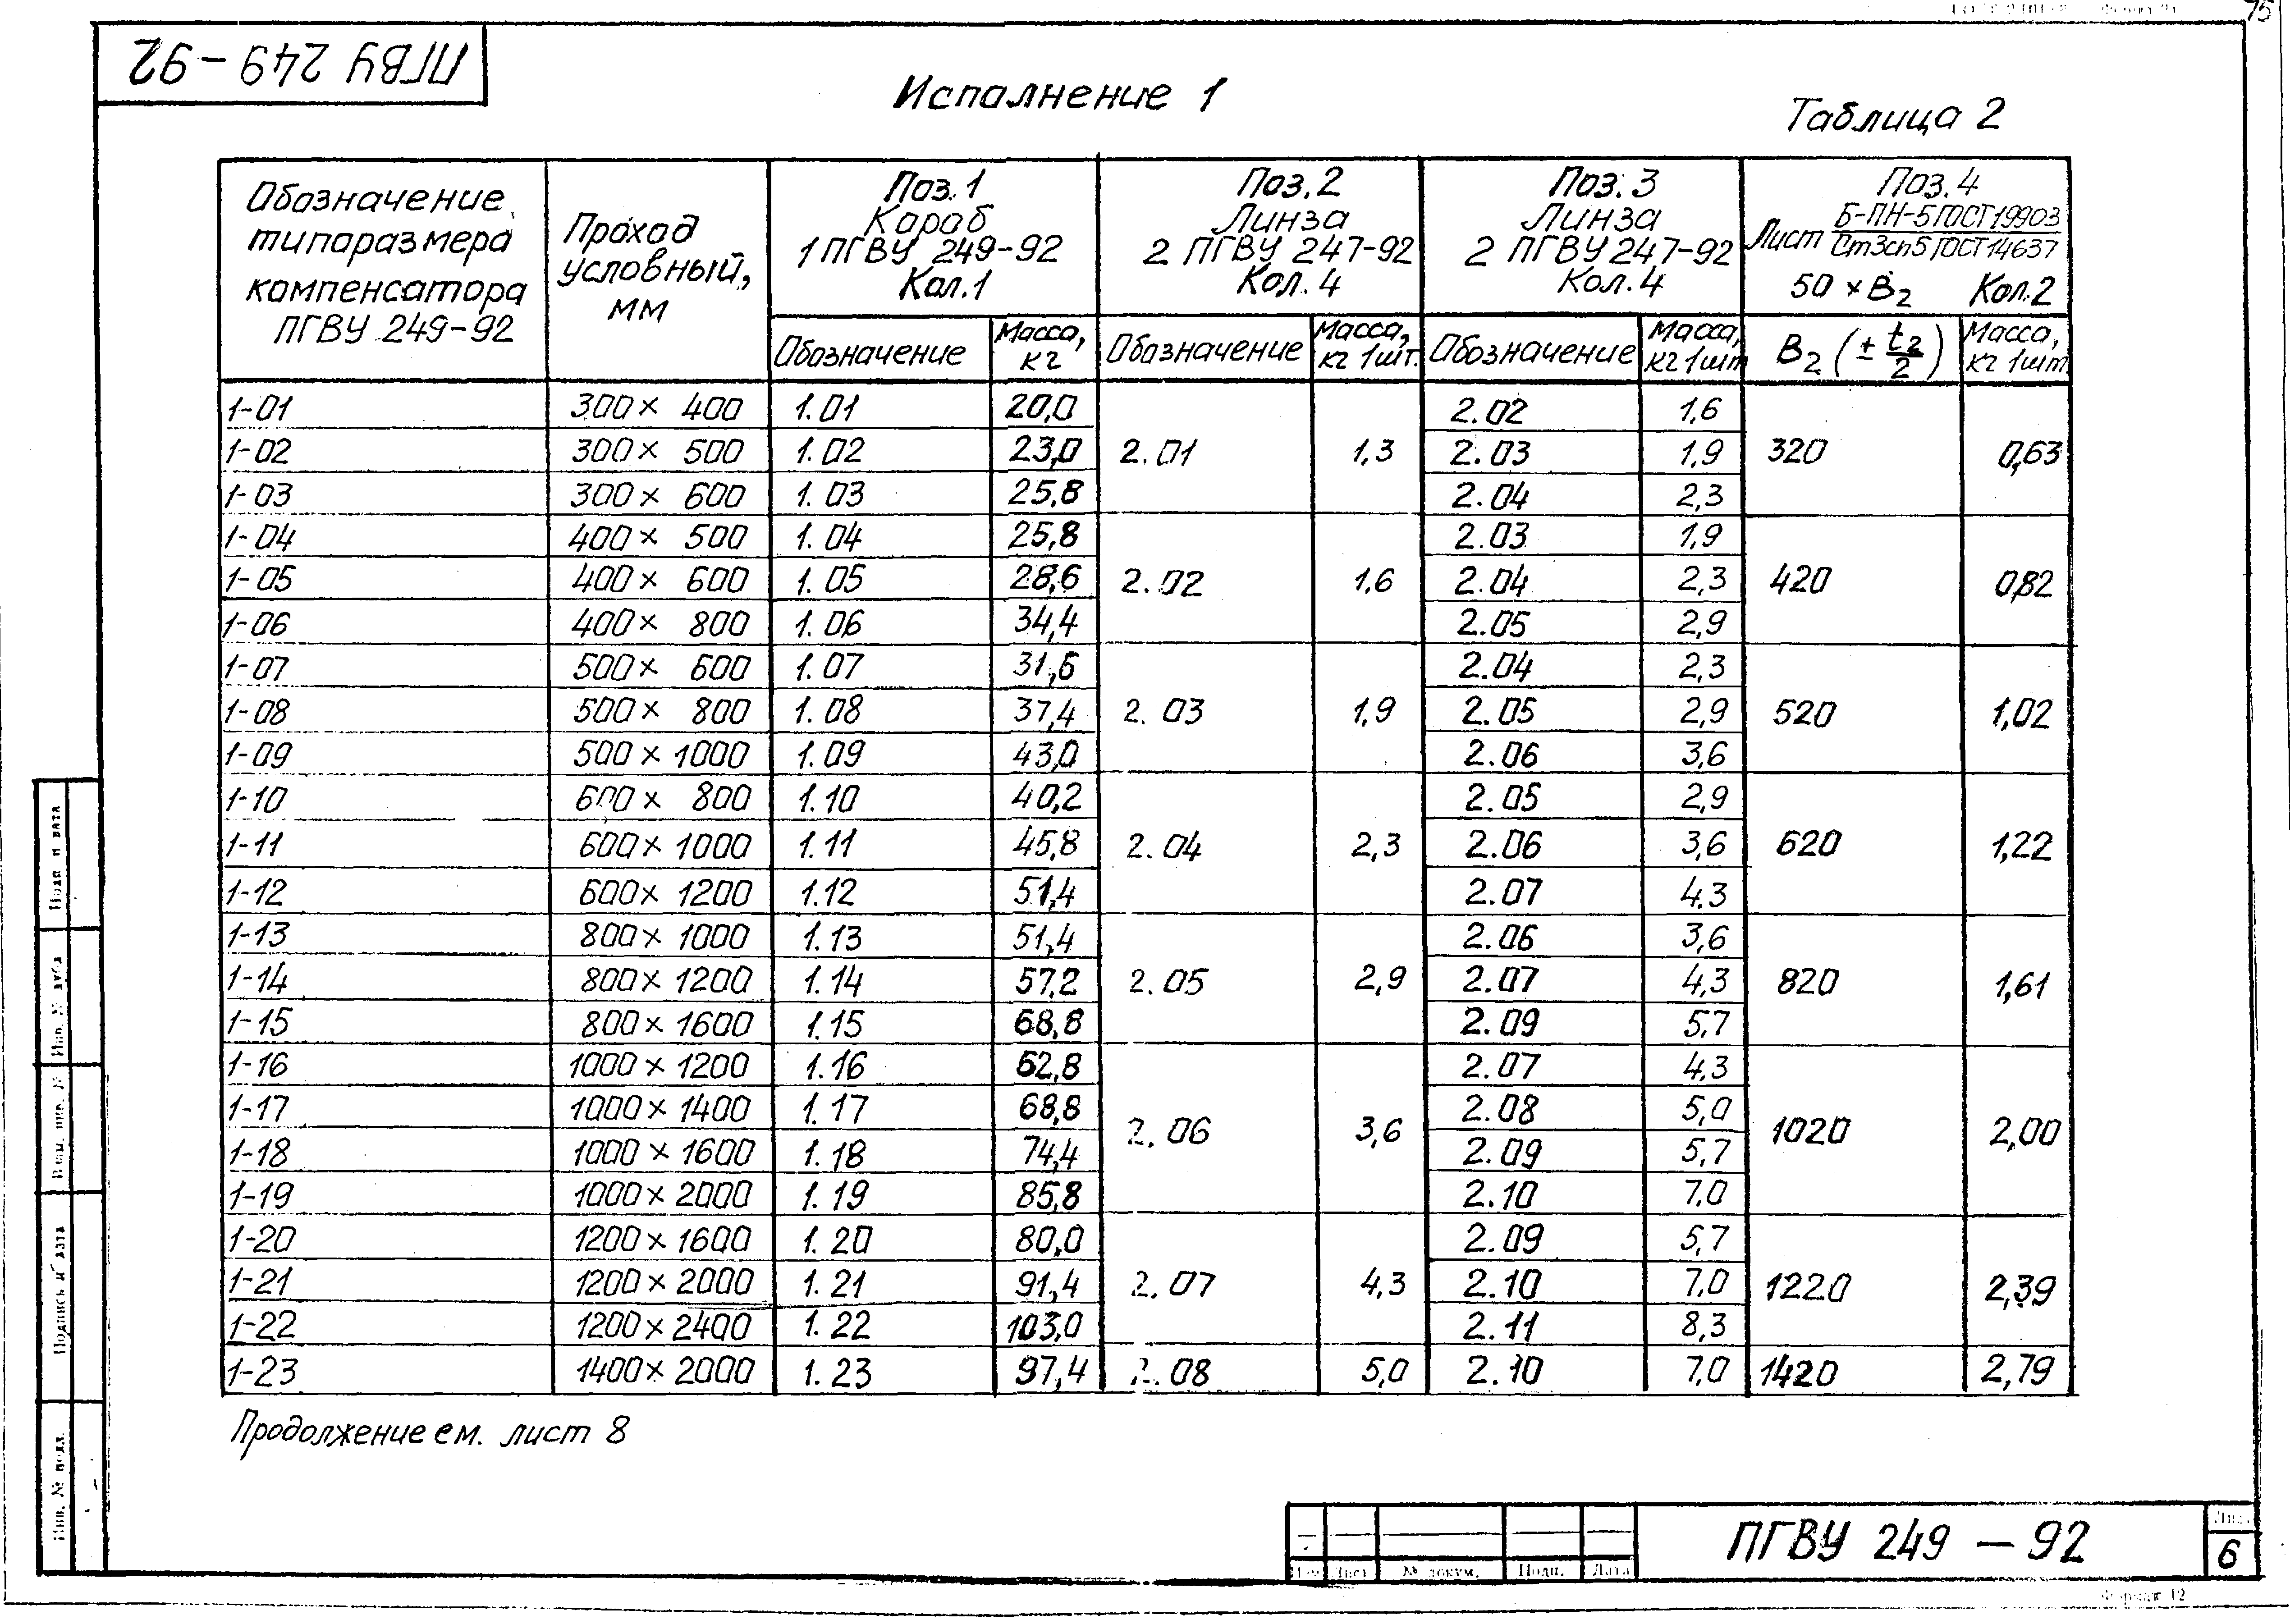 75
ПГВУ 249-92
Исполнение 1
Таблица 2
Обозначение типоразмера компенсатора ПГВУ 249-92 | Проход условный, мм | Поз.1 Короб 1 ПГВУ 249-92 Кол.1 | Поз.2 Линза 2 ПГВУ 247-92 Кол.4 | Поз.3 Линза 2 ПГВУ 247-92 Кол.4 | Поз.4 Лист Б-ПН-5 ГОСТ 19903 / Ст3сп5 ГОСТ 14637 50×B2 Кол.2
Обозначение | Масса, кг | Обозначение | Масса, кг 1шт. | Обозначение | Масса, кг 1шт | B2 (± t2/2) | Масса, кг 1шт
1-01 300× 400 1.01 20,0 2.02 1,6
1-02 300× 500 1.02 23,0 2.01 1,3 2.03 1,9 320 0,63
1-03 300× 600 1.03 25,8 2.04 2,3
1-04 400× 500 1.04 25,8 2.03 1,9
1-05 400× 600 1.05 28,6 2.02 1,6 2.04 2,3 420 0,82
1-06 400× 800 1.06 34,4 2.05 2,9
1-07 500× 600 1.07 31,6 2.04 2,3
1-08 500× 800 1.08 37,4 2.03 1,9 2.05 2,9 520 1,02
1-09 500×1000 1.09 43,0 2.06 3,6
1-10 600× 800 1.10 40,2 2.05 2,9
1-11 600×1000 1.11 45,8 2.04 2,3 2.06 3,6 620 1,22
1-12 600×1200 1.12 51,4 2.07 4,3
1-13 800×1000 1.13 51,4 2.06 3,6
1-14 800×1200 1.14 57,2 2.05 2,9 2.07 4,3 820 1,61
1-15 800×1600 1.15 68,8 2.09 5,7
1-16 1000×1200 1.16 62,8 2.07 4,3
1-17 1000×1400 1.17 68,8 2.06 3,6 2.08 5,0 1020 2,00
1-18 1000×1600 1.18 74,4 2.09 5,7
1-19 1000×2000 1.19 85,8 2.10 7,0
1-20 1200×1600 1.20 80,0 2.09 5,7
1-21 1200×2000 1.21 91,4 2.07 4,3 2.10 7,0 1220 2,39
1-22 1200×2400 1.22 103,0 2.11 8,3
1-23 1400×2000 1.23 97,4 2.08 5,0 2.10 7,0 1420 2,79
Продолжение см. лист 8
Подп и дата
Инв. № дубл
Взам. инв. №
Подпись и дата
Инв. № подл.
Лист № докум. Подп. Дата
ПГВУ 249 - 92
6
Формат 12